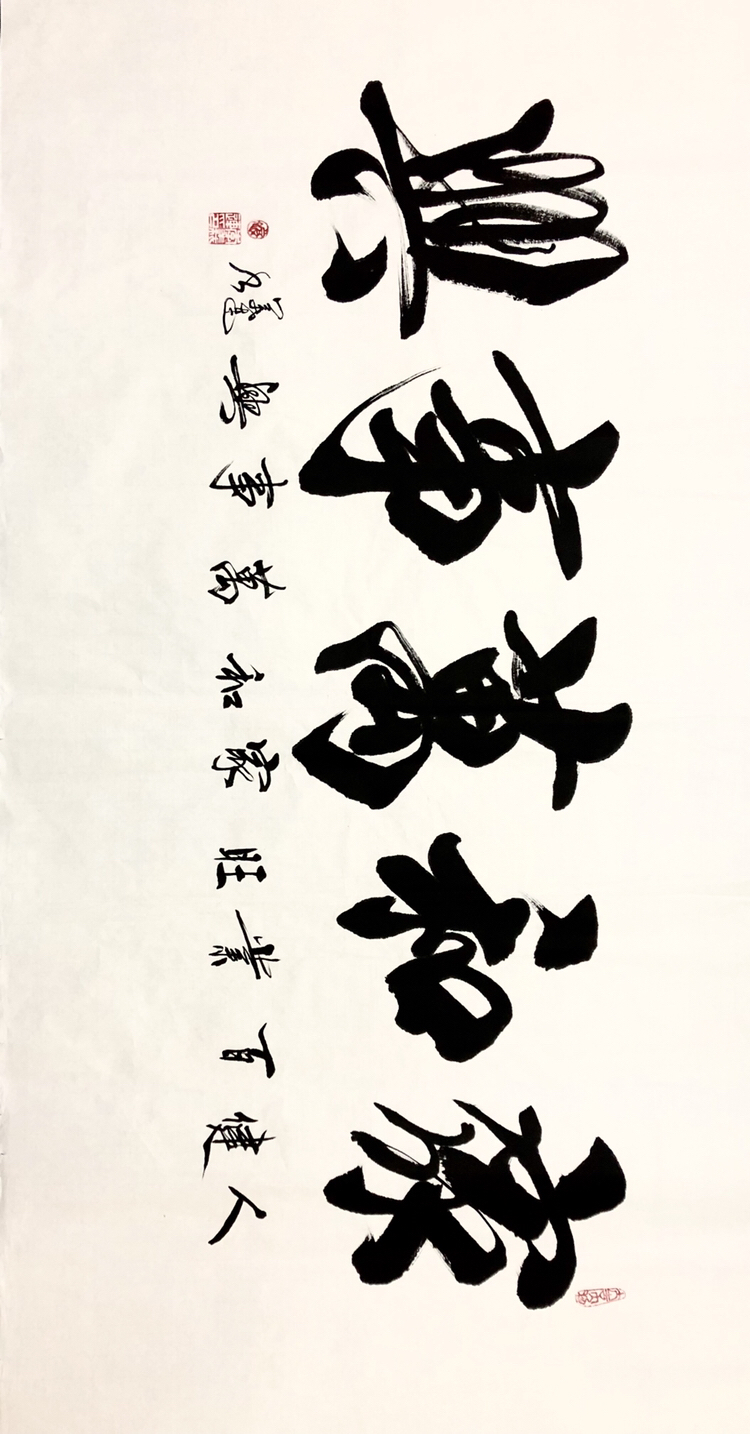 家和萬事興
人健百業旺家和萬事興